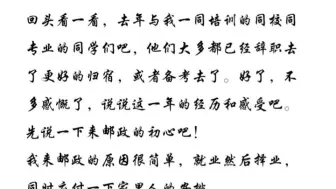 回头看一看,去年与我一同培训的同校同
专业的同学们吧,他们大多都已经辞职去
了更好的归宿,或者备考去了。好了,不
多感慨了,说说这一年的经历和感受吧。
先说一下来邮政的初心吧!
我来邮政的原因很简单,就业然后择业,